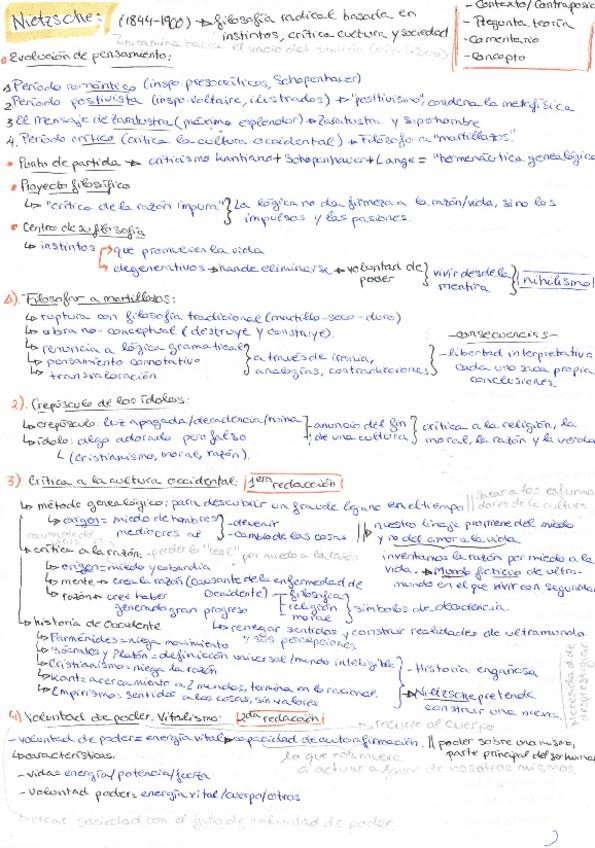 Nietzsche: (1844-1900) → filosofía radical basada en
instintos, crítica cultura y sociedad
- Contexto/Contraposic
- Pregunta teoría
- Comentario
- Concepto
• Evolución de pensamiento:
1 Período romántico (inspo presocráticos, Schopenhauer)
2 Período positivista (inspo. Voltaire, ilustrados) → "positivismo", condena la metafísica
3 El mensaje de Zaratustra (máximo esplendor) → Zaratustra y superhombre
4. Período crítico (critica la cultura occidental) → Filósofo a "martillazos".
• Punto de partida → criticismo kantiano + Schopenhauer + Lange = "hermenéutica genealógica
• Proyecto filosófico
↳ "crítica de la razón impura" } La lógica no da firmeza a la razón/vida, sino los
impulsos y las pasiones.
• Centro de su filosofía
↳ instintos → que promueven la vida
→ degenerativos → han de eliminarse → voluntad de poder } vivir desde la mentira } nihilismo
1). Filosofar a martillazos:
↳ ruptura con filosofía tradicional (martillo-seco-duro)
↳ obra no-conceptual (destruye y construye).
↳ renuncia a lógica gramatical
↳ pensamiento connotativo
↳ transvaloración
} a través de ironía,
analogías, contradicciones
- consecuencias -
- libertad interpretativa
cada uno saca propias
conclusiones.
2). Crepúsculo de los ídolos:
↳ crepúsculo: luz apagada/decadencia/ruina
↳ ídolo: algo adorado pero falso
↳ (cristianismo, moral, razón).
- anuncio del fin
de una cultura
} crítica a la religión, la
moral, la razón y la verdad
3) Crítica a la cultura occidental: 1era redacción
↳ método genealógico: para descubrir un fraude lejano en el tiempo
↳ origen = miedo de hombres
mediocres al
- devenir
- cambio de las cosas
nuestro linaje proviene del miedo
y no del amor a la vida.
↳ crítica a la razón: - perder lo "real" por miedo a la razón
↳ origen = miedo y cobardía
↳ mente → crea la razón (causante de la enfermedad de
Occidente)
↳ razón → cree haber
generado gran progreso
filosofía
religión
moral
} símbolos de decadencia.
inventamos la razón por miedo a la
vida. → Mundo ficticio de ultra-
mundo en el que vivir con seguridad
↳ historia de Occidente → renegar sentidos y construir realidades de ultramundo
y sus percepciones
↳ Parménides = niega movimiento
↳ Sócrates y Platón = definición universal/mundo inteligible
↳ Cristianismo = niega la razón
↳ Kant = acercamiento a 2 mundos, termina en lo racional.
↳ Empirismo: sentidos a las cosas, sin valores
- Historia engañosa
→ Nietzsche pretende
construir una nueva.
necesidad de
desprestigiar
4) Voluntad de poder. Vitalismo: 2da redacción
→ recurre al cuerpo
- voluntad de poder = energía vital → capacidad de autoafirmación. || poder sobre uno mismo,
parte principal del ser humano
lo que nos mueve
a actuar a favor de nosotros mismos
↳ características.
- vida = energía/potencia/fuerza
- voluntad poder = energía vital/cuerpo/otros